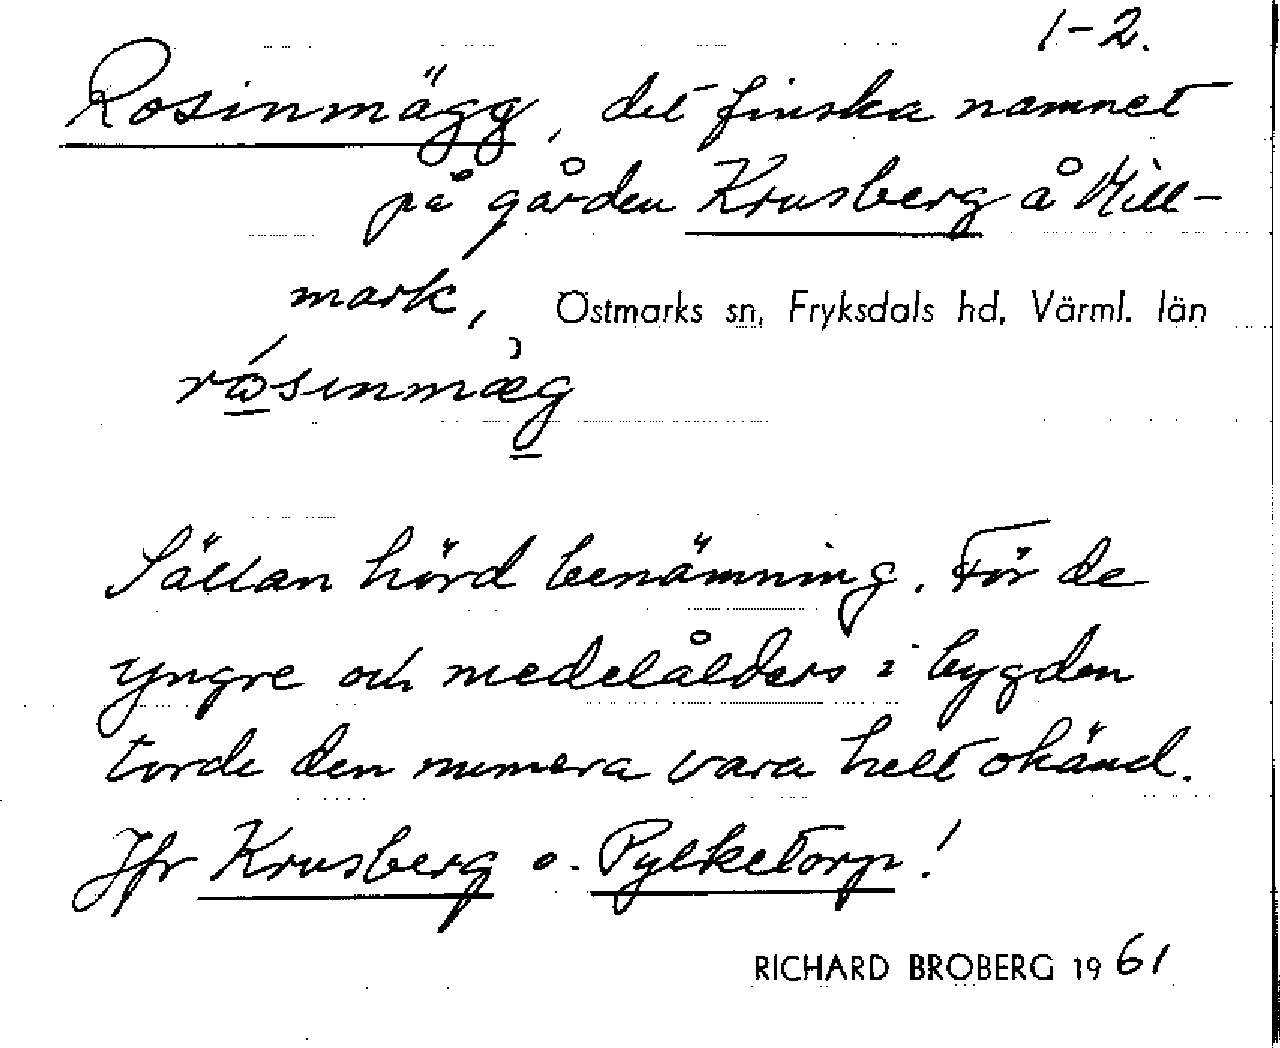 1-2.
Rosinmägg, det finska namnet
på gården Krusberg å Mill-
mark, Östmarks sn, Fryksdals hd, Värml. län
Sällan hörd benämning. För de
yngre och medelålders i bygden
torde den numera vara helt okänd.
Jfr Krusberg o. Pylketorp!
RICHARD BROBERG 1961